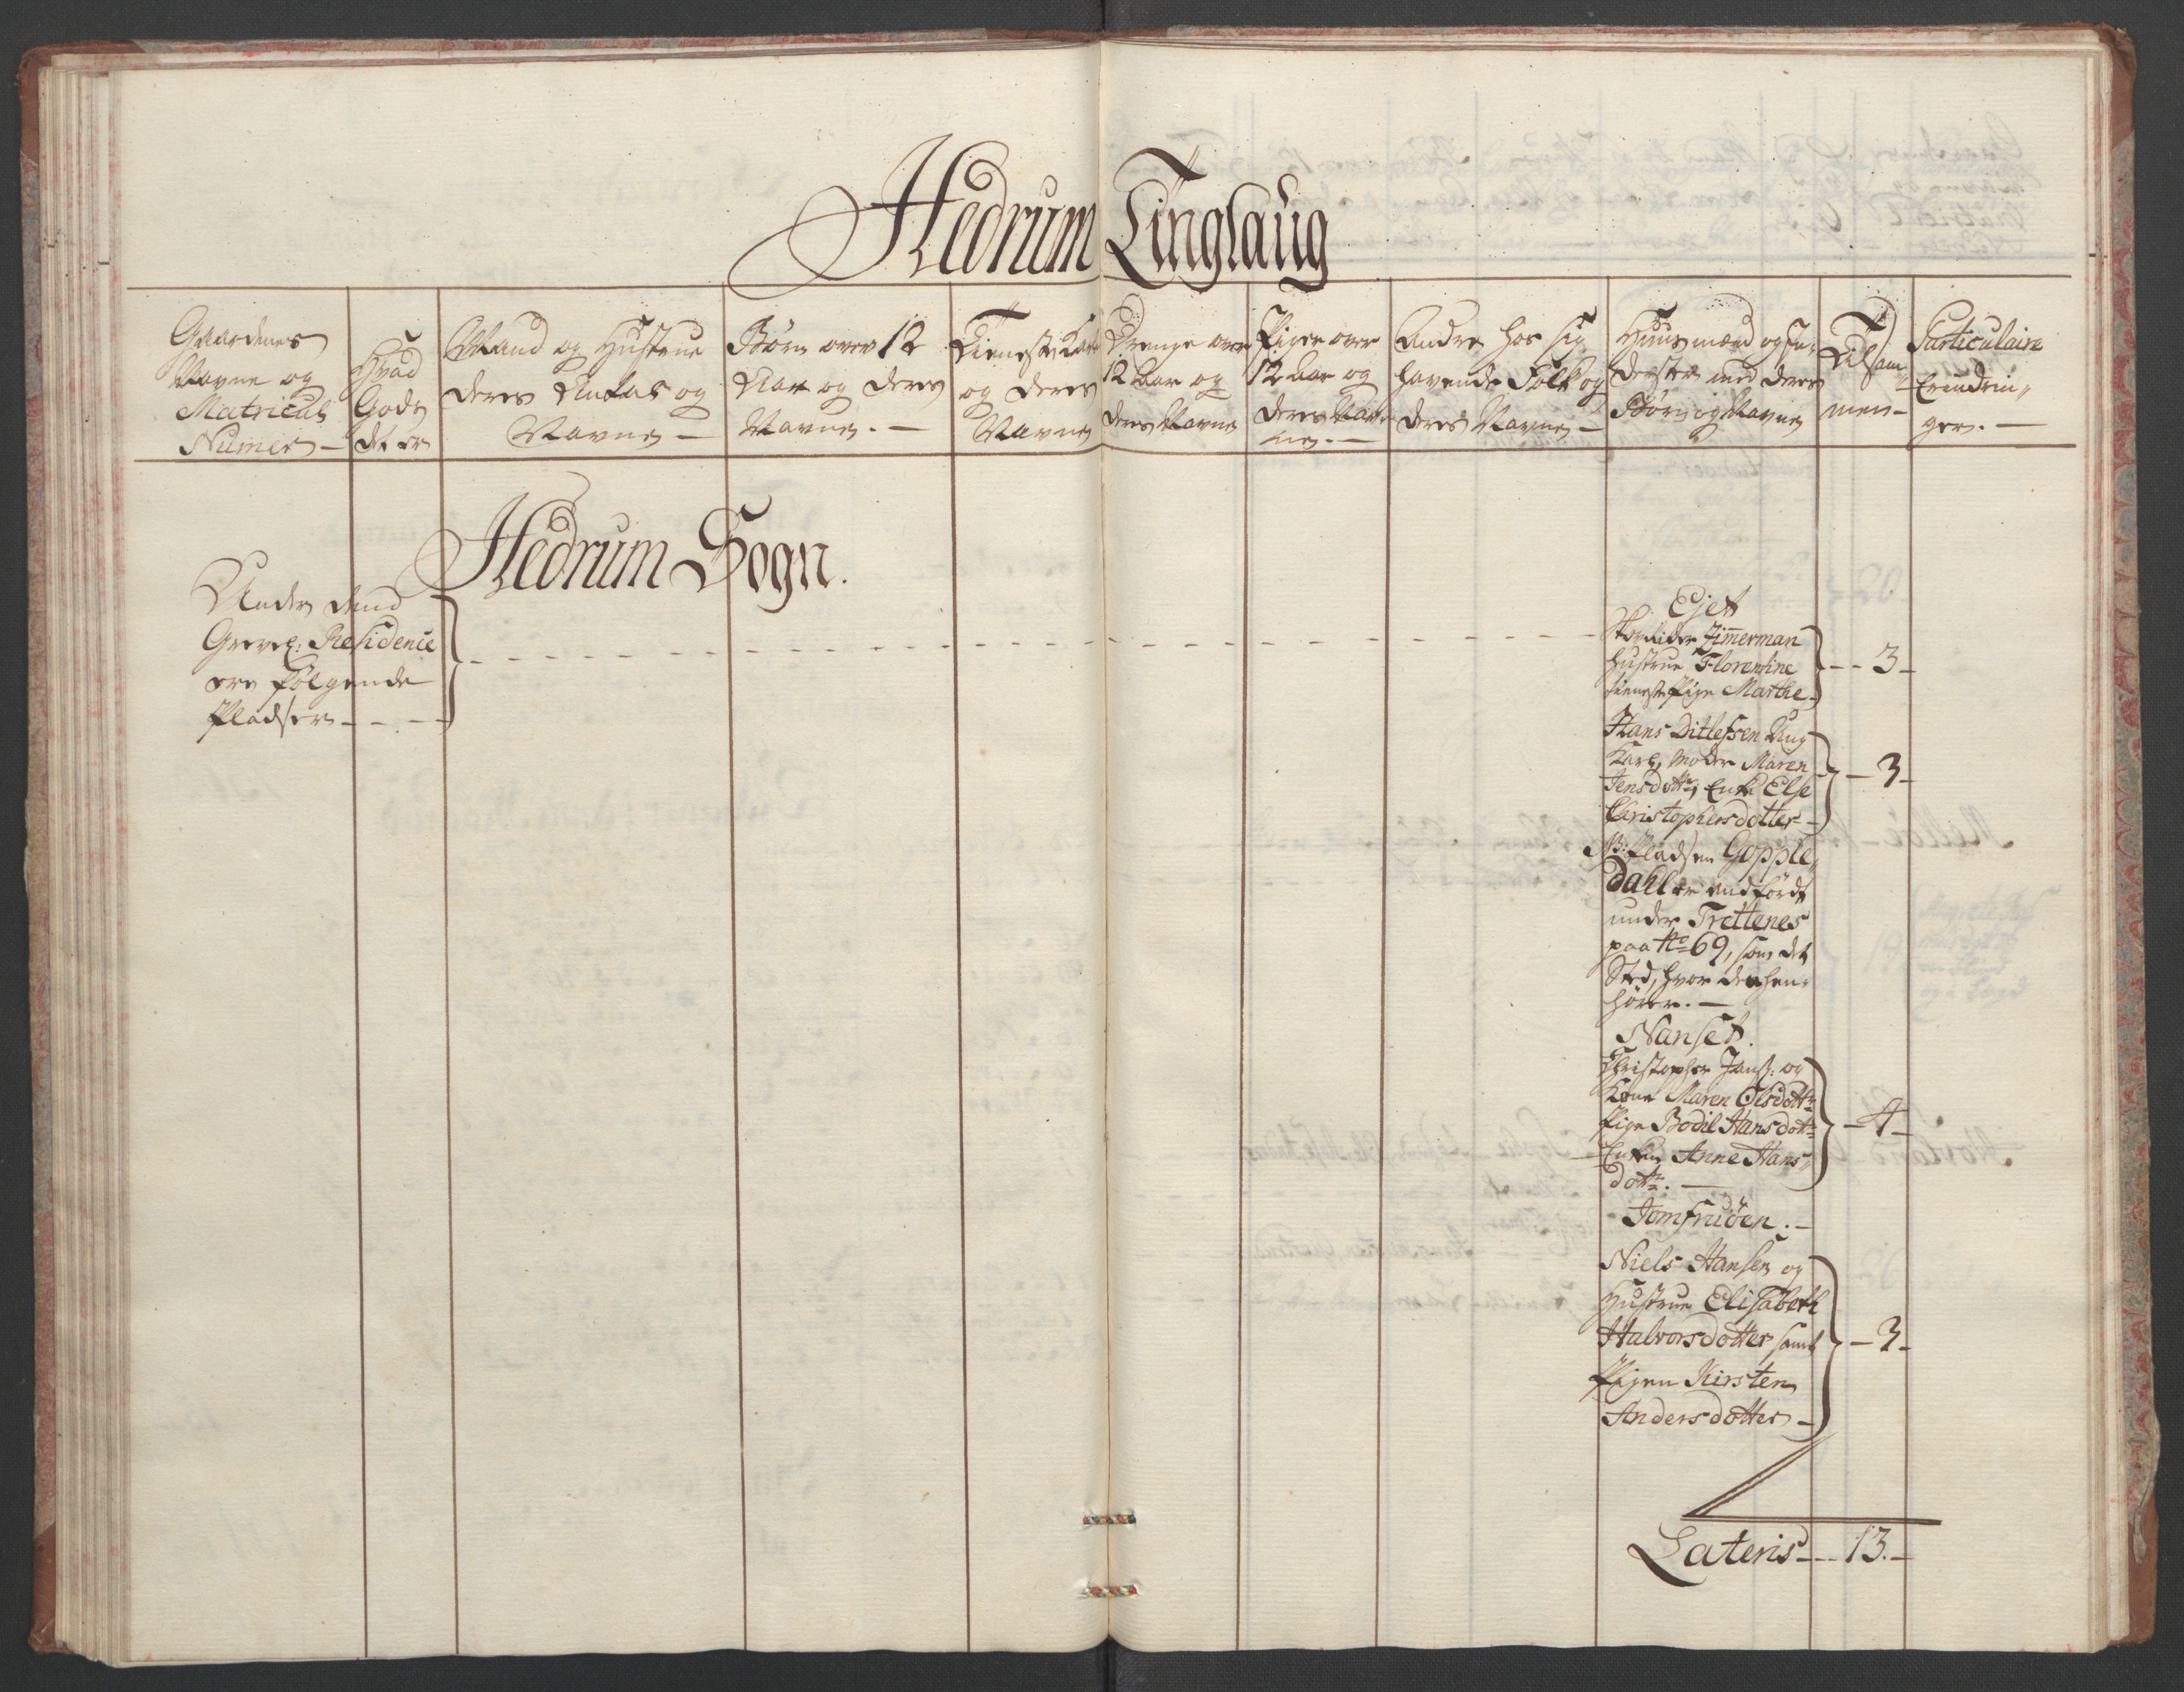 Hedrum Tinglaug
Gaardenes
Navne og
Matriculs
Numer –
Hvad
Gods
det er
Mand og Hustrue
deres Antal og
Navne –
Børn over 12
Aar og deres
Navne. –
Tieneste Karle
og deres
Navne
Drenge over
12 Aar og
deres Navne
Piger over
12 Aar og
deres Nav-
ne. –
Andre hos sig
havende Folk og
deres Navne –
Huusmænd og In-
derster med deres
Børn og Navne
Tilsam-
men –
Particulaire
Erindrin-
ger. –
Hedrum Sogn.
Under dend
Grevel: Residence
ere følgende
Pladser – – –
Ejet
Skovrider Zimmerman
Hustrue Florentine
tieneste Pige Marthe – – – 3 –
Hans Ditlefsen Ung
Karl, Moder Maren
Jensdotter, Enke Else
Christophersdotter – – 3 –
NB: Pladsen Gopple-
dahl er andført
under Trettenes
paa No 69, som det
Sted, hvor den hen-
hører. –
Nanset.
Christopher Jans: og
Kone Maren Olsdottr
Pige Bodil Hansdottr
Enken Anne Hans-
dottr. – – 4 –
Jomfruöen. –
Niels Hansen og
Hustrue Elisabeth
Halvorsdotter samt
Pigen Kirsten
Andersdotter – – 3 –
Lateris – – 13. –